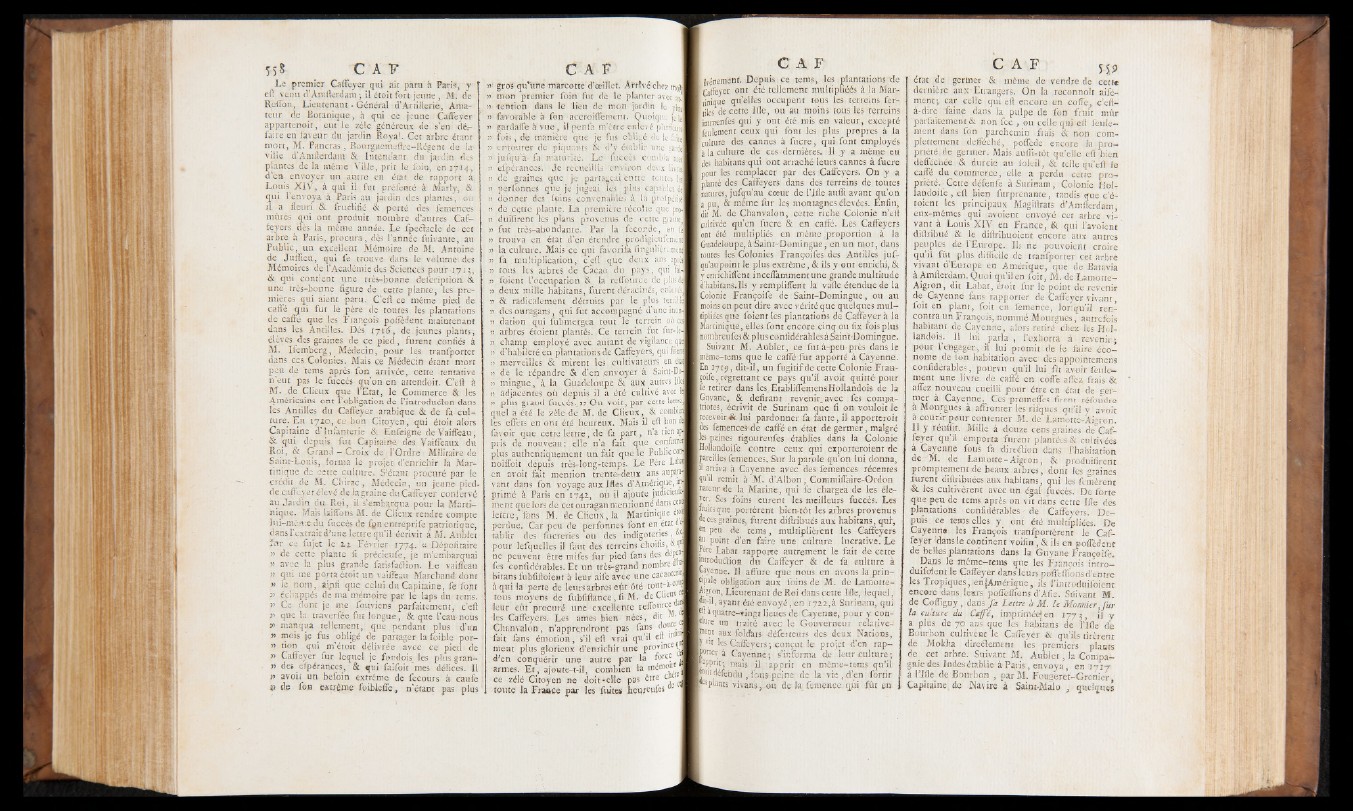 558 C A F
Le premier Caffeyer qui ait paru à Paris, y
est venu d'Amsterdam ; il étoit fort jeune, M. de
Resson, Lieutenant-Général d'Artillerie, Ama-
teur de Botanique, à qui ce jeune Caffeyer
appartenoit, eut le zèle généreux de s'en dé-
faire en faveur du jardin Royal. Cet arbre étant
mort, M. Pancras, Bourguemestre-Régent de la
ville d'Amsterdam & Intendant du jardin des
plantes de la même Ville, prit le soin, en 1714,
d'en envoyer un autre en état de rapport à
Louis XIV, à qui il fut présenté à Marly, &
qui l'envoya à Paris au jardin des plantes, où
il a fleuri & fructifié & porté des semences
mûres qui ont produit nombre d'autres Caf-
feyers dès la même année. Le spectacle de cet
arbre à Paris, procura, dès l'année suivante, au
Public, un excellent Mémoire de M. Antoine
de Jussieu, qui se trouve dans le volume des
Mémoires de l'Académie des Sciences pour 1713,
& qui contient une très-bonne description &
une très-bonne figure de cette plante, les pre-
mières qui aient paru. C'est ce même pied de
caffé qui fut le père de toutes les plantations
de caffé que les François possèdent maintenant
dans les Antilles. Dès 1716, de jeunes plants,
élèves des graines de ce pied, furent confiés à
M. Isemberg, Medecin, pour les transporter
dans ces Colonies. Mais ce Médecin étant mort
peu de tems après son arrivée, cette tentative
n'eut pas le succès qu'on en attendoit. C'est à
M. de Clieux que l'Etat, le Commerce & les
Américains ont l'obligation de l'introduction dans
les Antilles du Caffeyer arabique & de sa cul-
ture. En 1720, ce bon Citoyen, qui étoit alors
Capitaine d'Infanterie & Enseigne de Vaisseau,
& qui depuis fut Capitaine des Vaisseaux du
Roi, & Grand-Croix de l'Ordre Militaire de
Saint-Louis, forma le projet d'enrichir la Mar-
tinique de cette culture. S'étant procuré par le
crédit de M. Chirac, Medecin, un jeune pied
de caffeyer élevé de la graine du Caffeyer conservé
au Jardin du Roi, il s'embarqua pour la Marti-
nique. Mais laissons M. de Clieux rendre compte
lui-même du succès de son entreprise patriotique,
dans l'extrait d'une lettre qu'il écrivit à M. Aublet
sur ce sujet le 22 Février 1774. « Dépositaire
» de cette plante si précieuse, je m'embarquai
» avec la plus grande satisfaction. Le vaisseau
» qui me porta étoit un vaisseau Marchand dont
» le nom, ainsi que celui du Capitaine, se sont
» échappés de ma mémoire par le laps du tems.
» Ce dont je me souviens parfaitement, c'est
» que la traversée fut longue, & que l'eau nous
» manqua tellement, que pendant plus d'un
» mois je fus obligé de partager la foible por-
» tion qui m'étoit délivrée avec ce pied de
» Caffeyer sur lequel je fondois les plus gran-
» des espérances, & qui faisoit mes délices. Il
» avoit un besoin extrême de secours à cause
» de son extrême foiblesse, n'étant pas plus
C A F
» gros qu'une marcotte d'œillet. Arrivé chez moi
» mon premier soin fut de le planter avec at-
» tention dans le lieu de mon jardin le plus
» favorable à son accroissement. Quoique je le
» gardasse à vue, il pensa m'être enlevé plusieurs
» fois, de manière que je fus obligé de le faire
» entourer de piquants & d'y établir une garde
» jusqu'à sa maturité. Le succès combla mes
» espérances. Je recueillis environ deux livres
» de graines que je partageai entre toutes les
» personnes que je jugeai les plus capables de
» donner des soins convenables à la prospérité
» de cette plante. La première récolte que pro-
» duisirent les plans provenus de cette graine,
» fut très-abondante. Par la seconde, on se
» trouva en état d'en étendre prodigieusement
» la culture. Mais ce qui favorisa singulièrement
» sa multiplication, c'est que deux ans après
» tous les arbres de Cacao du pays, qui fai-
» soient l'occupation & la ressource de plus de
» deux mille habitans, furent déracinés, enlevés
» & radicalement détruits par le plus terrible
» des ouragans, qui fut accompagné d'une inon-
» dation qui submergea tout le terrein où ces
» arbres étoient plantés. Ce terrein fut sur-le-
» champ employé avec autant de vigilance que
» d'habileté en plantations de Caffeyers, qui firent
» merveilles & mirent les cultivateurs en état
» de le répandre & d'en envoyer à Saint-Do-
» mingue, à la Guadeloupe & aux autres Isles
» adjacentes où depuis il a été cultivé avec le
» plus grand succès. » On voit, par cette lettre,
quel a été le zèle de M. de Clieux, & combien
ses effets en ont été heureux. Mais il est bon de
savoir que cette lettre, de sa part, n'a rien ap-
pris de nouveau : elle n'a fait que confirmer
plus authentiquement un fait que le Public con-
noissoit depuis très-long-temps. Le Père Labat
en avoit fait mention trente-deux ans aupara-
vant dans son voyage aux Isles d'Amérique, im-
primé à Paris en 1742, où il ajoute judicieuse-
ment que lors de cet ouragan mentionné dans cette
lettre, sans M. de Clieux, la Martinique étoit
perdue. Car peu de personnes sont en état d'é-
tablir des sucreries ou des indigoteries, &c.
pour lesquelles il faut des terreins choisis, & qui
ne peuvent être mises sur pied sans des dépen-
ses considérables. Et un très-grand nombre d'ha-
bitans subsistoient à leur aise avec une cacaotere,
à qui la perte de leurs arbres eût ôté tout-à-coup
tous moyens de subsistance, si M. de Clieux ne
leur eût procuré une excellente ressource dans
les Caffeyers. Les ames bien nées, dit M. de
Chanvalon, n'apprendront pas sans doute ce
fait sans émotion, s'il est vrai qu'il est infini-
ment plus glorieux d'enrichir une province que
d'en conquérir une autre par la force des
armes. Et, ajoute-t-il, combien la mémoire de
ce zélé Citoyen ne doit-elle pas être chère à
toute la France par les suites heureuses de cet
C A F
événement. Depuis ce tems, les plantations de
Caffeyer ont été tellement multipliées à la Mar-
tinique qu'elles occupent tous les terreins fer-
tiles de cette Isle, ou au moins tous les terreins
immenses qui y ont été mis en valeur, excepté
seulement ceux qui sont les plus propres à la
culture des cannes à sucre, qui sont employés
à la culture de ces dernières. Il y a même eu
des habitans qui ont arraché leurs cannes à sucre
pour les remplacer par des Caffeyers. On y a
planté des Caffeyers dans des terreins de toutes
natures, jusqu'au cœur de l'Isle aussi avant qu'on
a pu, & même sur les montagnes élevées. Enfin,
dit M. de Chanvalon, cette riche Colonie n'est
cultivée qu'en sucre & en caffé. Les Caffeyers
ont été multipliés en même proportion à la
Guadeloupe, à Saint-Domingue, en un mot, dans
toutes les Colonies Françoises des Antilles jus-
qu'au point le plus extrême, & ils y ont enrichi, &
y enrichissent incessamment une grande multitude
d'habitans. Ils y remplissent la vaste étendue de la
Colonie Françoise de Saint-Domingue, ou au
moins on peut dire avec vérité que quelques mul-
tipliées que soient les plantations de Caffeyer à la
Martinique, elles sont encore cinq ou six fois plus
nombreuses & plus considérables à Saint-Domingue.
Suivant M. Aublet, ce fut à-peu-près dans le
même-tems que le caffé fut apporté à Cayenne.
En 1719, dit-il, un fugitif de cette Colonie Fran-
çoise, regrettant ce pays qu'il avoit quitté pour
se retirer dans les Etablissemens Hollandois de la
Guyane, & desirant revenir avec ses compa-
triotes, écrivit de Surinam que si on vouloit le
recevoir & lui pardonner sa faute, il apporteroit
des semences de caffé en état de germer, malgré
les peines rigoureuses établies dans la Colonie
Hollandoise contre ceux qui exporteroient de
pareilles semences. Sur la parole qu'on lui donna,
il arriva à Cayenne avec des semences récentes
qu'il remit à M. d'Albon, Commissaire-Ordon-
nateur de la Marine, qui se chargea de les éle-
ver. Ses soins eurent les meilleurs succès. Les
fruits que portèrent bien-tôt les arbres provenus
de ces graines, furent distribués aux habitans, qui,
en peu de tems, multiplièrent les Caffeyers
au point d'en faire une culture lucrative. Le
Père Labat rapporte autrement le fait de cette
introduction du Caffeyer & de sa culture à
Cayenne. Il assure que nous en avons la prin-
cipale obligation aux soins de M. de Lamotte-
Aigron, Lieutenant de Roi dans cette Isle, lequel,
dit-il, ayant été envoyé, en 1722, à Surinam, qui
est à quatre-vingt lieues de Cayenne, pour y con-
clure un traité avec le Gouverneur relative-
ment aux soldats déserteurs des deux Nations,
y vit les Caffeyers; conçut le projet d'en rap-
porter à Cayenne; s'informa de leur culture;
l'apprit; mais il apprit en même-tems qu'il
étoit défendu, sous peine de la vie, d'en sortir
des plants vivans, ou de la semence qui fût en
C A F 559
état de germer & même de vendre de cette
dernière aux Etrangers. On la reconnoît aisé-
ment; car celle qui est encore en coffe, c'est-
à-dire saine dans la pulpe de son fruit mûr
parfaitement & non sec, ou celle qui est seule-
ment dans son parchemin frais & non com-
plettement desséché, possède encore la pro-
priété de germer. Mais aussi-tôt qu'elle est bien
desséchée & durcie au soleil, & telle qu'est le
caffé du commerce, elle a perdu cette pro-
priété. Cette défense à Surinam, Colonie Hol-
landoise, est bien surprenante, tandis que c'é-
toient les principaux Magistrats d'Amsterdam,
eux-mêmes qui avoient envoyé cet arbre vi-
vant à Louis XIV en France, & qui l'avoient
distribué & le distribuoient encore aux autres
peuples de l'Europe. Ils ne pouvoient croire
qu'il fût plus difficile de transporter cet arbre
vivant d'Europe en Amérique, que de Batavia
à Amsterdam. Quoi qu'il en soit, M. de Lamotte-
Aigron, dit Labat, étoit sur le point de revenir
de Cayenne sans rapporter de Caffeyer vivant,
soit en plant, soit en semence, lorsqu'il ren-
contra un François, nommé Mourgues, autrefois
habitant de Cayenne, alors retiré chez les Hol-
landois. Il lui parla, l'exhorta à revenir;
pour l'engager, il lui promit de le faire éco-
nome de son habitation avec des appointemens
considérables, pourvu qu'il lui fît avoir seule-
ment une livre de caffé en coffe assez frais &
assez nouveau cueilli pour être en état de ger-
mer à Cayenne. Ces promesses firent résoudre
à Mourgues à affronter les risques qu'il y avoit
à courir pour contenter M. de Lamotte-Aigron.
Il y réussit. Mille à douze cens graines de Caf-
feyer qu'il emporta furent plantées & cultivées
à Cayenne sous sa direction dans l'habitation
de M. de Lamotte-Aigron, & produisirent
promptement de beaux arbres, dont les graines
furent distribuées aux habitans, qui les semèrent
& les cultivèrent avec un égal succès. De sorte
que peu de tems après on vit dans cette Isle des
plantations considérables de Caffeyers. De-
puis ce tems elles y ont été multipliées. De
Cayenne les François transportèrent le Caf-
feyer dans le continent voisin, & ils en possèdent
de belles plantations dans la Guyane Françoise.
Dans le même-tems que les François intro-
duisoient le Caffeyer dans leurs possessions d'entre
les Tropiques, en Amérique, ils l'introduisoient
encore dans leurs possessions d'Asie. Suivant M.
de Cossigny, dans sa Lettre à M. le Monnier, sur
la culture du Caffé, imprimée en 1773, il y
a plus de 70 ans que les habitans de l'Isle de
Bourbon cultivent le Caffeyer & qu'ils tirèrent
de Mokha directement les premiers plants
de cet arbre. Suivant M. Aublet, la Compa-
gnie des Indes établie à Paris, envoya, en 1717
à l'Isle de Bourbon, par M. Fougeret-Grenier,
Capitaine de Navire à Saint-Malo, quelques